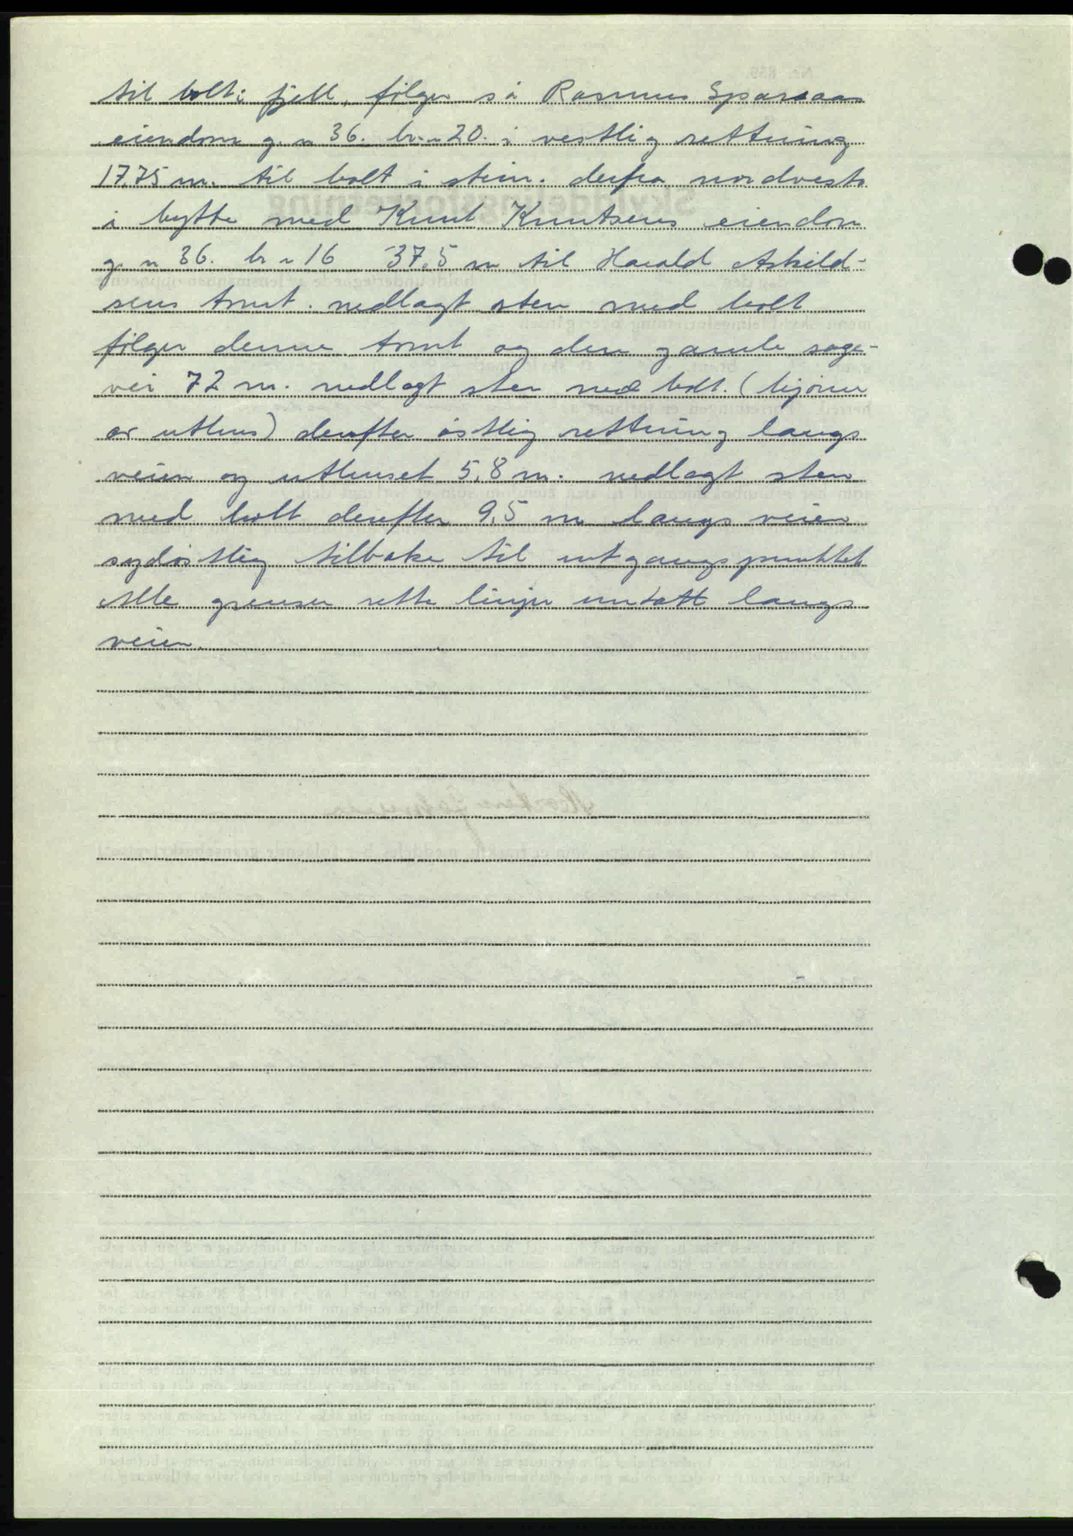 til bolt i fjell, følger så Rasmus
eiendom g. n 36. br. n 20. i vestlig rettning
17,75 m. til bolt i stein. derfra nordvest
i bytte med Knut Knutsens eiendom
g. n 36. br n 16 37,5 m til Harald Askild-
sens tomt. nedlagt sten med bolt
følger denne tomt og den gamle sage-
vei 72 m. nedlagt sten med bolt. (hjørne
av uthus) derefter østlig rettning langs
veien og uthuset 5,8 m. nedlagt sten
med bolt derefter 9,5 m langs veien
sydøstlig tilbake til utgangspunktet
Alle grenser rette linjer untatt langs
veien.